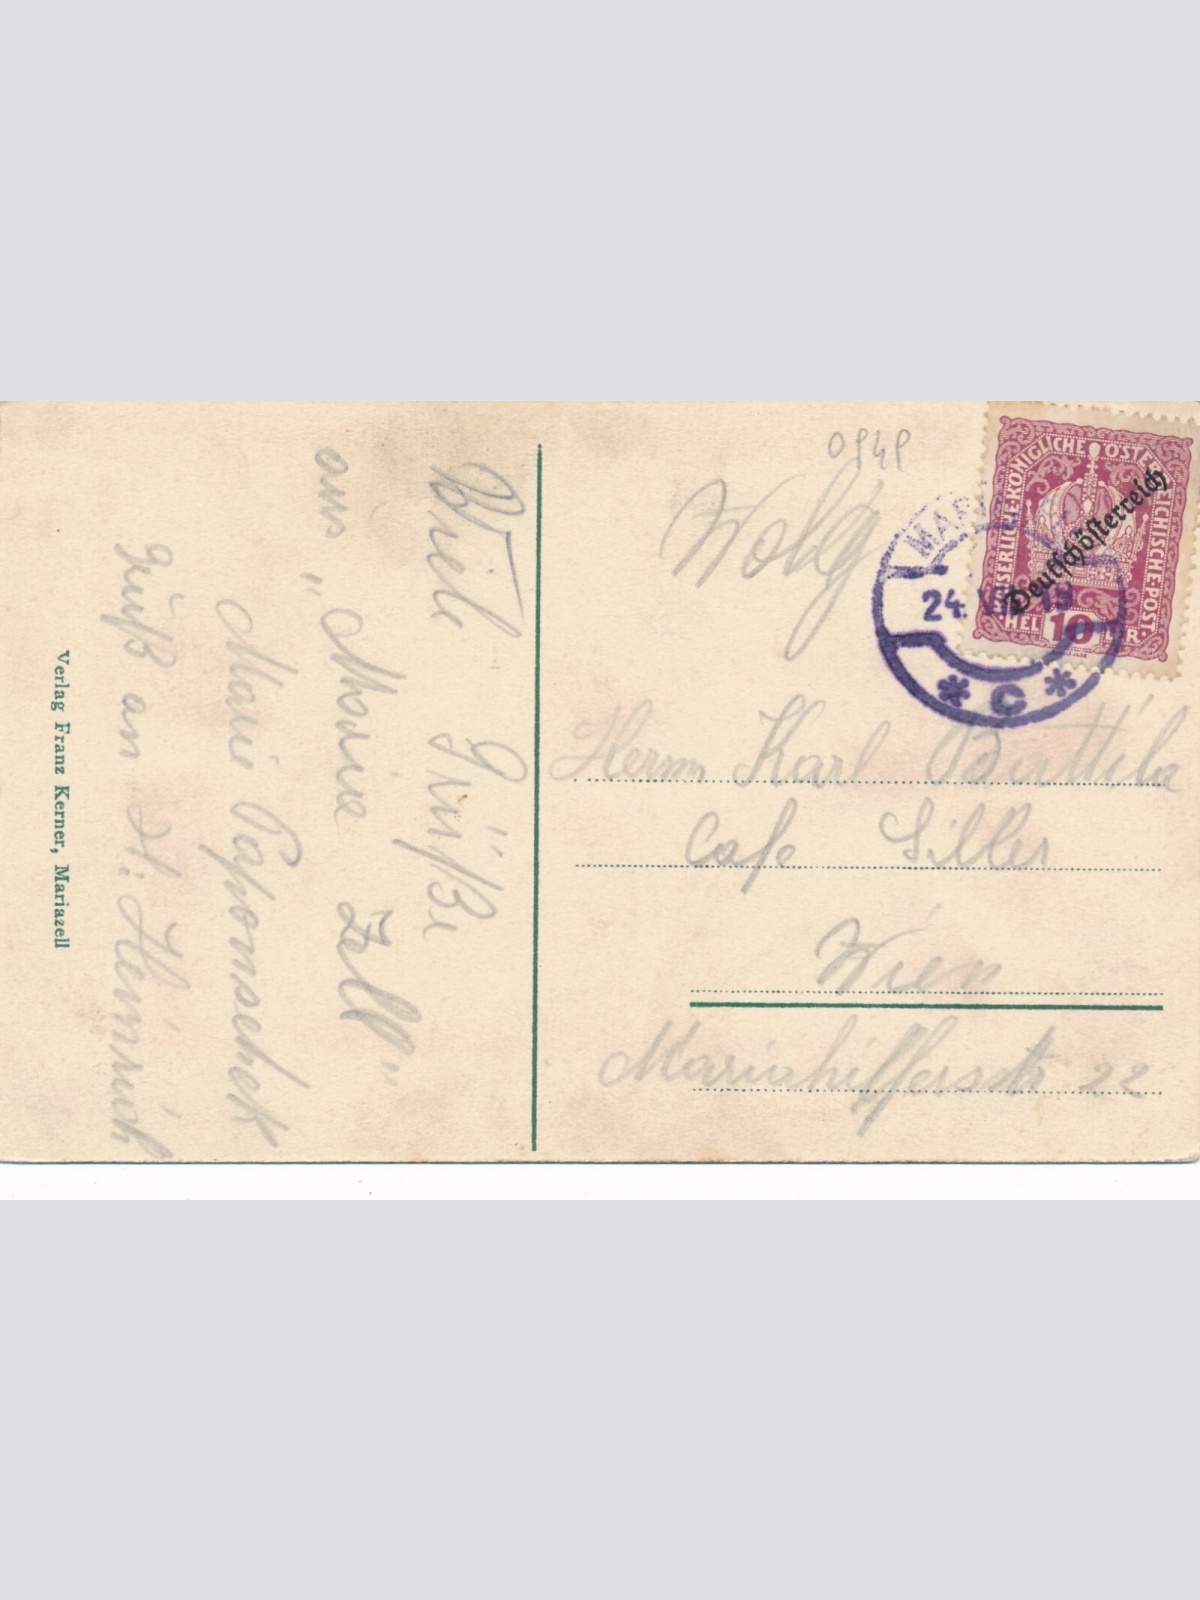 Viele Grüße
aus
"Maria Zell"
Marie
Gruß an H. Heinrich
Verlag Franz Kerner, Mariazell
0949
Wolg
KAISERLICHE KÖNIGLICHE ÖSTERREICHISCHE POST
Deutschösterreich
HELLER
10
MARIA
24. VII 19
* C *
Herrn Karl Battila
Cafe Siller
Wien
Mariahilferstr 22